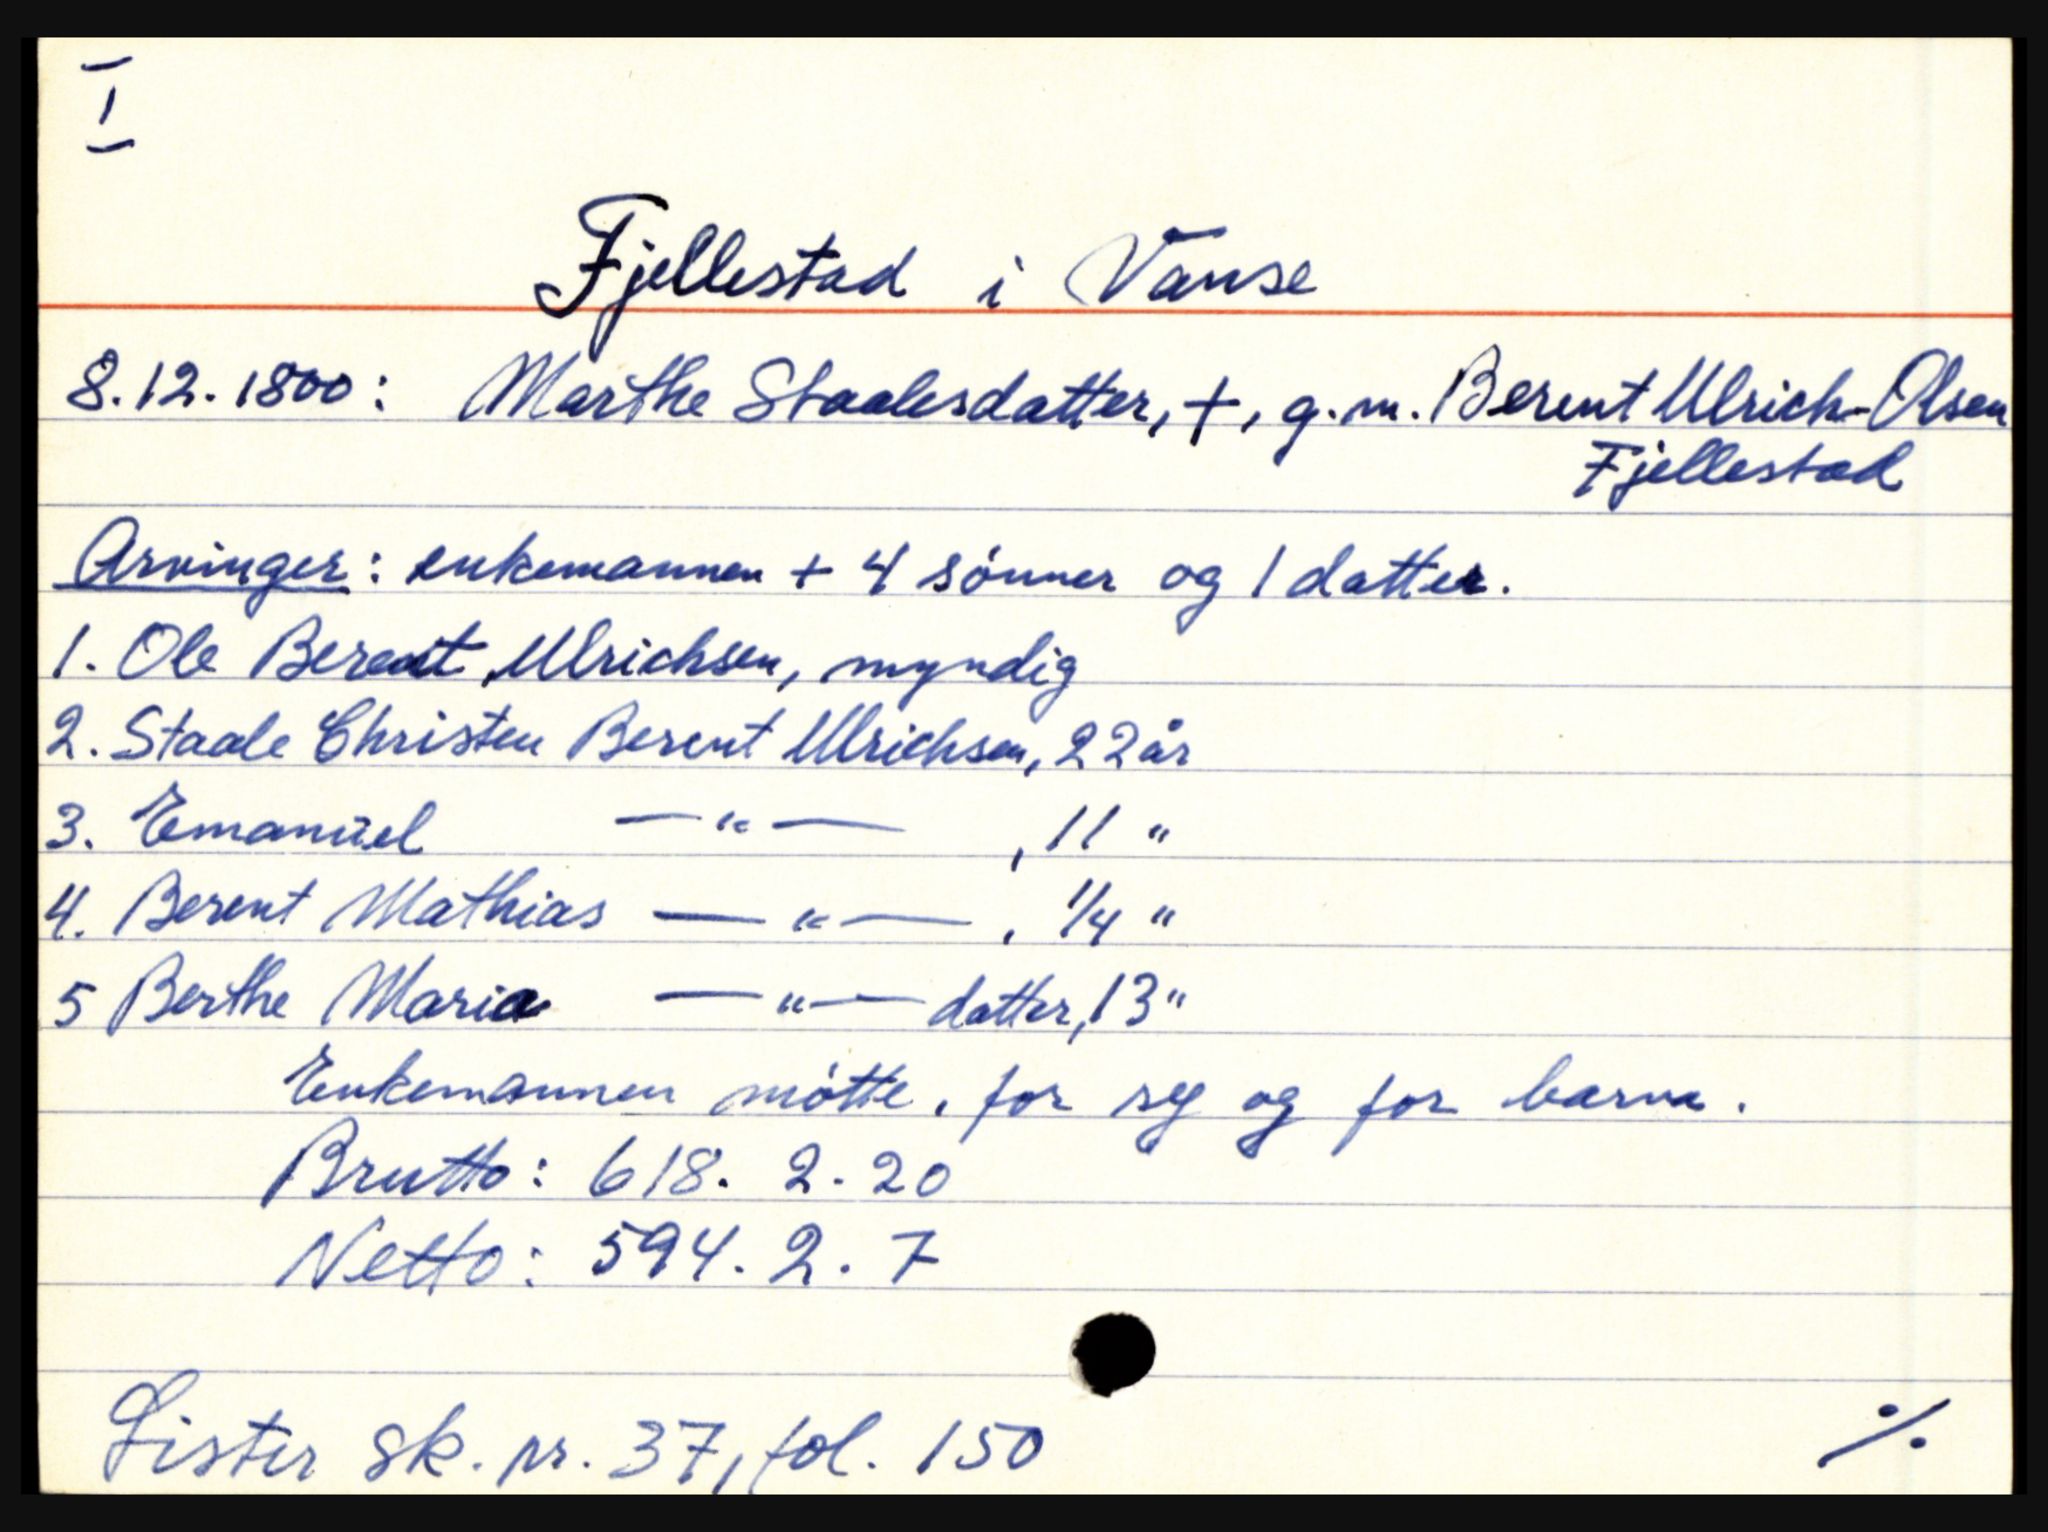 I
Fjellestad i Vanse
8.12.1800: Marthe Staalesdatter, †, g.m. Berent Ulrich Olsen
Fjellestad
Arvinger: enkemannen + 4 sønner og 1 datter.
1. Ole Berent Ulrichsen, myndig
2. Staale Christen Berent Ulrichsen, 22 år
3. Emanuel —"— , 11 "
4. Berent Mathias —"— , 1/4 "
5 Berthe Maria —"— datter, 13 "
Enkemannen møtte, for seg og for barna.
Brutto: 618. 2. 20
Netto: 594. 2. 7
Lister sk. nr. 37, fol. 150
·/.